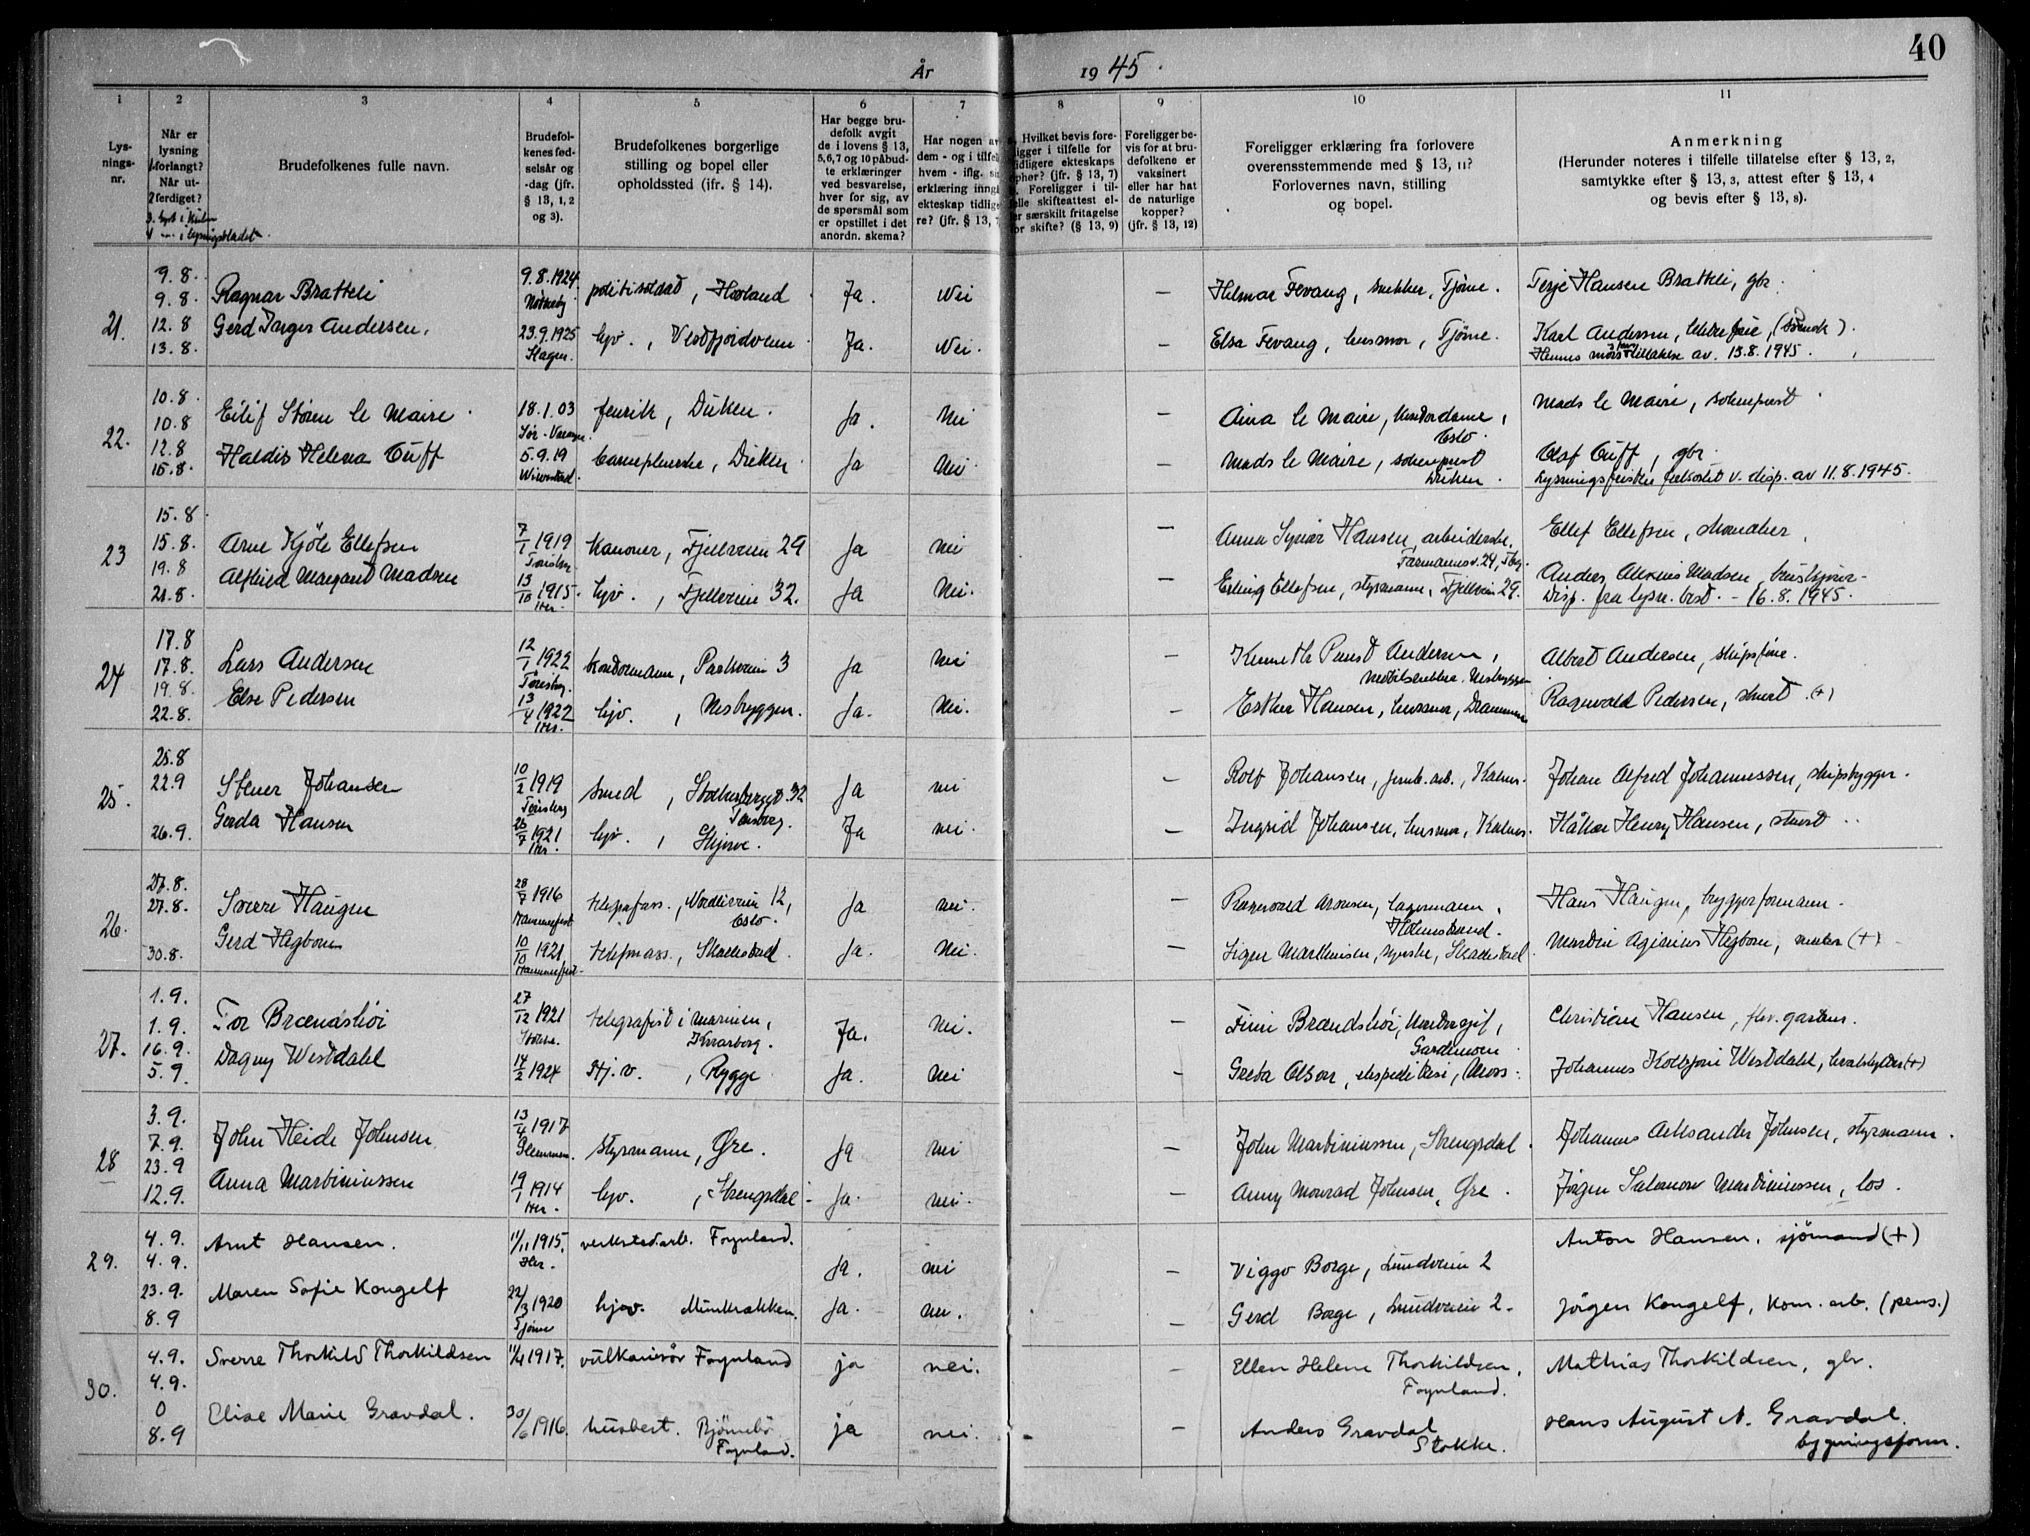 År 1945.
40
1 2 3 4 5 6 7 8 9 10 11
Lys-
nings-
nr.
Når er
lysning
1. forlangt?
Når ut-
2 ferdiget?
Brudefolkenes fulle navn.
Brudefol-
kenes fød-
selsår og
-dag (jfr.
§ 13, 1, 2
og 3).
Brudefolkenes borgerlige
stilling og bopel eller
opholdssted (ifr. § 14).
Har begge bru-
defolk avgit
de i lovens § 13,
5, 6, 7 og 10 påbud-
te erklæringer
ved besvarelse,
hver for sig, av
de spørsmål som
er opstillet i det
anordn. skema?
Har nogen av
dem - og i tilfelle
hvem - iflg.
erklæring inngå
ekteskap tidlige-
re? (jfr. § 13, 7
Hvilket bevis fore-
ligger i tilfelle for
tidligere ekteskaps
ophør? (jfr. § 13, 7)
Foreligger i til-
felle skifteattest el-
ler særskilt fritagelse
for skifte? (§ 13, 9)
Foreligger be-
vis for at bru-
defolkene er
vaksinert
eller har hat
de naturlige
kopper?
(jfr. § 13, 12)
Foreligger erklæring fra forlovere
overensstemmende med § 13, 11?
Forlovernes navn, stilling
og bopel.
Anmerkning
(Herunder noteres i tilfelle tillatelse efter § 13, 2,
samtykke efter § 13, 3, attest efter § 13, 4
og bevis efter § 13, 8).
21.
9.8.
9.8.
12.8
13.8.
Ragnar Bratteli 9.8.1924 politisoldat, Ja. Nei — Hilmar Fevang, snekker, Tjøme. Terje Hansen Bratteli, gbr.
Gerd Inger Andersen. 23.9.1925 Slagen. hjv., Ja. Nei. — Elsa Fevang, husmor, Tjøme. Karl Andersen,
tillatelse av 13.8.1945.
22.
10.8.
10.8
12.8
15.8.
Eilif Støren le Maire 18.1.03 Ja. Nei — Aina le Maire, kontordame, Oslo. Mads le Maire, sokneprest
Haldis Helena Cuff 5.9.19 Ja Nei — Mads le Maire, sokneprest Olaf Cuff, gbr.
Lysningsfristen forkortet v. disp. av 11.8.1945.
23
15.8
15.8.
19.8
21.8.
Arne Kjøle Ellefsen 7/1 1919 Tønsberg Kanoner, Fjellveien 29 Ja Nei — Anna Synøve Hansen, arbeiderske, Farmannsv. 24, Tbg. Ellef Ellefsen,
Alfhild Margaret Madsen 13/10 1915. Her. hjv., Fjellveien 32. Ja Nei. — Erling Ellefsen, styrmann, Fjellveien 29. Anders Madsen,
Disp. fra lysn. best. - 16.8.1945.
24
17.8
17.8.
19.8.
22.8.
Lars Andersen 12/1 1922 Tønsberg. kontormann, Parkveien 3 Ja Nei Kenneth Andersen, Albert Andersen, skipsfører.
Else Pedersen 13/4 1922 Her. hjv., Nesbryggen. Ja. Nei. — Esther Hansen, husmor, Drammen Ragnvald Pedersen, stuert (+)
25.
25.8
22.9
26.9.
Stener Johansen 10/2 1919 Tønsberg Smed, 32 Tønsberg. Ja nei — Rolf Johansen, jernb. arb., Johan Alfred Johannessen, skipsbygger.
Gerda Hansen 26/7 1921 Her. hjv., Ja nei. — Ingrid Johansen, husmor, Håkon Henry Hansen, stuert
26.
27.8.
27.8.
30.8.
Sverre Haugen 28/7 1916 Hammerfest telegrafass., Nordliveien 12, Oslo. Ja nei. — Ragnvald Aronsen, lagermann, Holmestrand. Hans Haugen, bryggeformann.
Gerd Hegbom 10/10 1921 Hammerfest. Ja. Nei. — Martin Hegbom, (+)
27.
1.9.
1.9.
16.9.
5.9.
Tor Brændshøi 27/12 1921 Stokke. telegrafist i marinen, Kvarberg. Ja. Nei. — Finn Brændshøi, Gardemoen Christian Hansen,
Dagny Westdahl 14/2 1924 Hj.v., Rygge Ja. Nei — Greta Olsen, Moss. Johannes Westdahl, (+)
28
3.9.
7.9.
23.9
12.9.
John Heide Johnsen 13/4 1917 Glemmen. styrmann, Øre. Ja nei — John Martiniussen, Strengsdal. Johannes Aleksander Johnsen, styrmann.
Anna Martiniussen 19/1 1914 Her. hjv., Strengsdal. Ja. nei. — Anny Monrad Johnsen, Øre. Jørgen Salomon Martiniussen, los.
29.
4.9.
4.9.
23.9.
8.9
Arnt Hansen. 11/11 1915. Her. verkstedarb. Føynland. Ja. nei — Viggo Borge, Lundveien 2 Anton Hansen, sjömand (+)
Maren Sofie Kongelf 22/3 1920 Tjöme hjv. Munkerekken Ja. nei. — Gerd Borge, Lundveien 2. Jörgen Kongelf, kom. arb. (pens.)
30.
4.9.
4.9.
0
8.9
Sverre Thorkild Thorkildsen 11/4 1917. vulkanisör Føynland ja nei. — Ellen Helene Thorkildsen, Føynland. Mathias Thorkildsen, gbr.
Elise Marie Gravdal. 30/6 1916 husbest. Bjönnebö Føynland. ja nei. — Anders Gravdal Stokke. Hans August A. Gravdal. bygningsform.